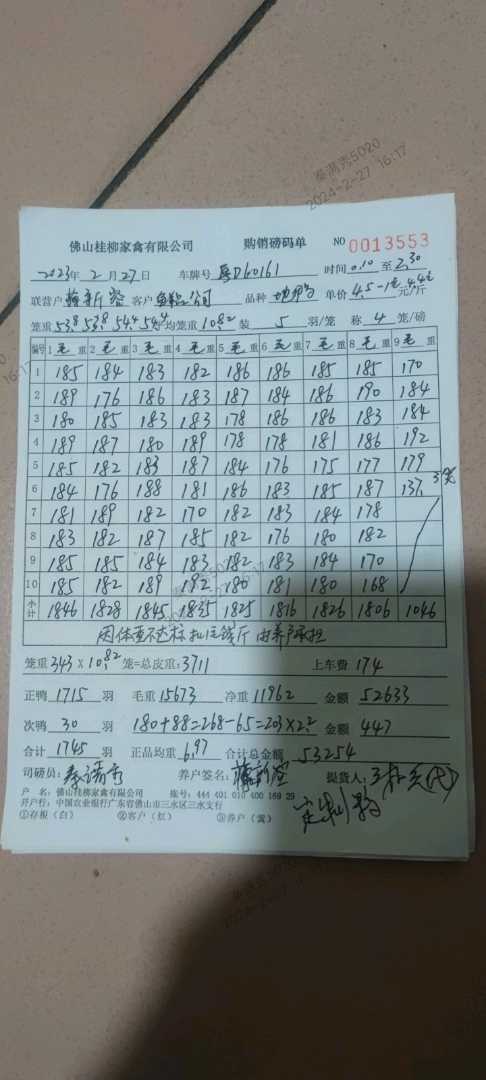 佛山桂柳家禽有限公司 购销磅码单 NO 0013553
2023年2月27日 车牌号 粤D60161 时间 0.10 至 2.30
联营户 客户 品种 单价 4.5-1 4.4 元/斤
笼重 53.8 53.8 54.4 54.4 均笼重 10.82 装 5 羽/笼 称 4 笼/磅
编号 1 毛 重 2 毛 重 3 毛 重 4 毛 重 5 毛 重 6 毛 重 7 毛 重 8 毛 重 9 毛 重
1 185 184 183 182 186 186 185 185 170
2 189 176 186 183 187 184 186 190 184
3 180 185 183 183 178 186 186 183 184
4 189 187 180 189 178 178 181 186 192
5 185 182 183 187 184 176 175 177 179
6 184 176 188 181 186 183 185 187 137 3笼
7 181 189 182 170 182 183 184 178
8 183 182 187 185 182 176 180 182
9 185 185 184 183 182 183 184 170
10 185 182 189 192 180 181 180 168
小计 1846 1828 1845 1835 1825 1816 1826 1806 1046
因体重不达标扣 斤由养户承担
笼重 343 X 10.82 笼=总皮重: 3711 上车费 174
正鸭 1715 羽 毛重 15673 净重 11962 金额 52633
次鸭 30 羽 180+88=268-65=203×2.2 金额 447
合计 1745 羽 正品均重 6.97 合计总金额 53254
司磅员: 养户签名: 提货人:
户 名: 佛山桂柳家禽有限公司 账号: 444 401 010 400 169 29
开户行: 中国农业银行广东省佛山市三水区三水支行
①存根(白) ②客户(红) ③养户(黄)
2024-2-27 16:17